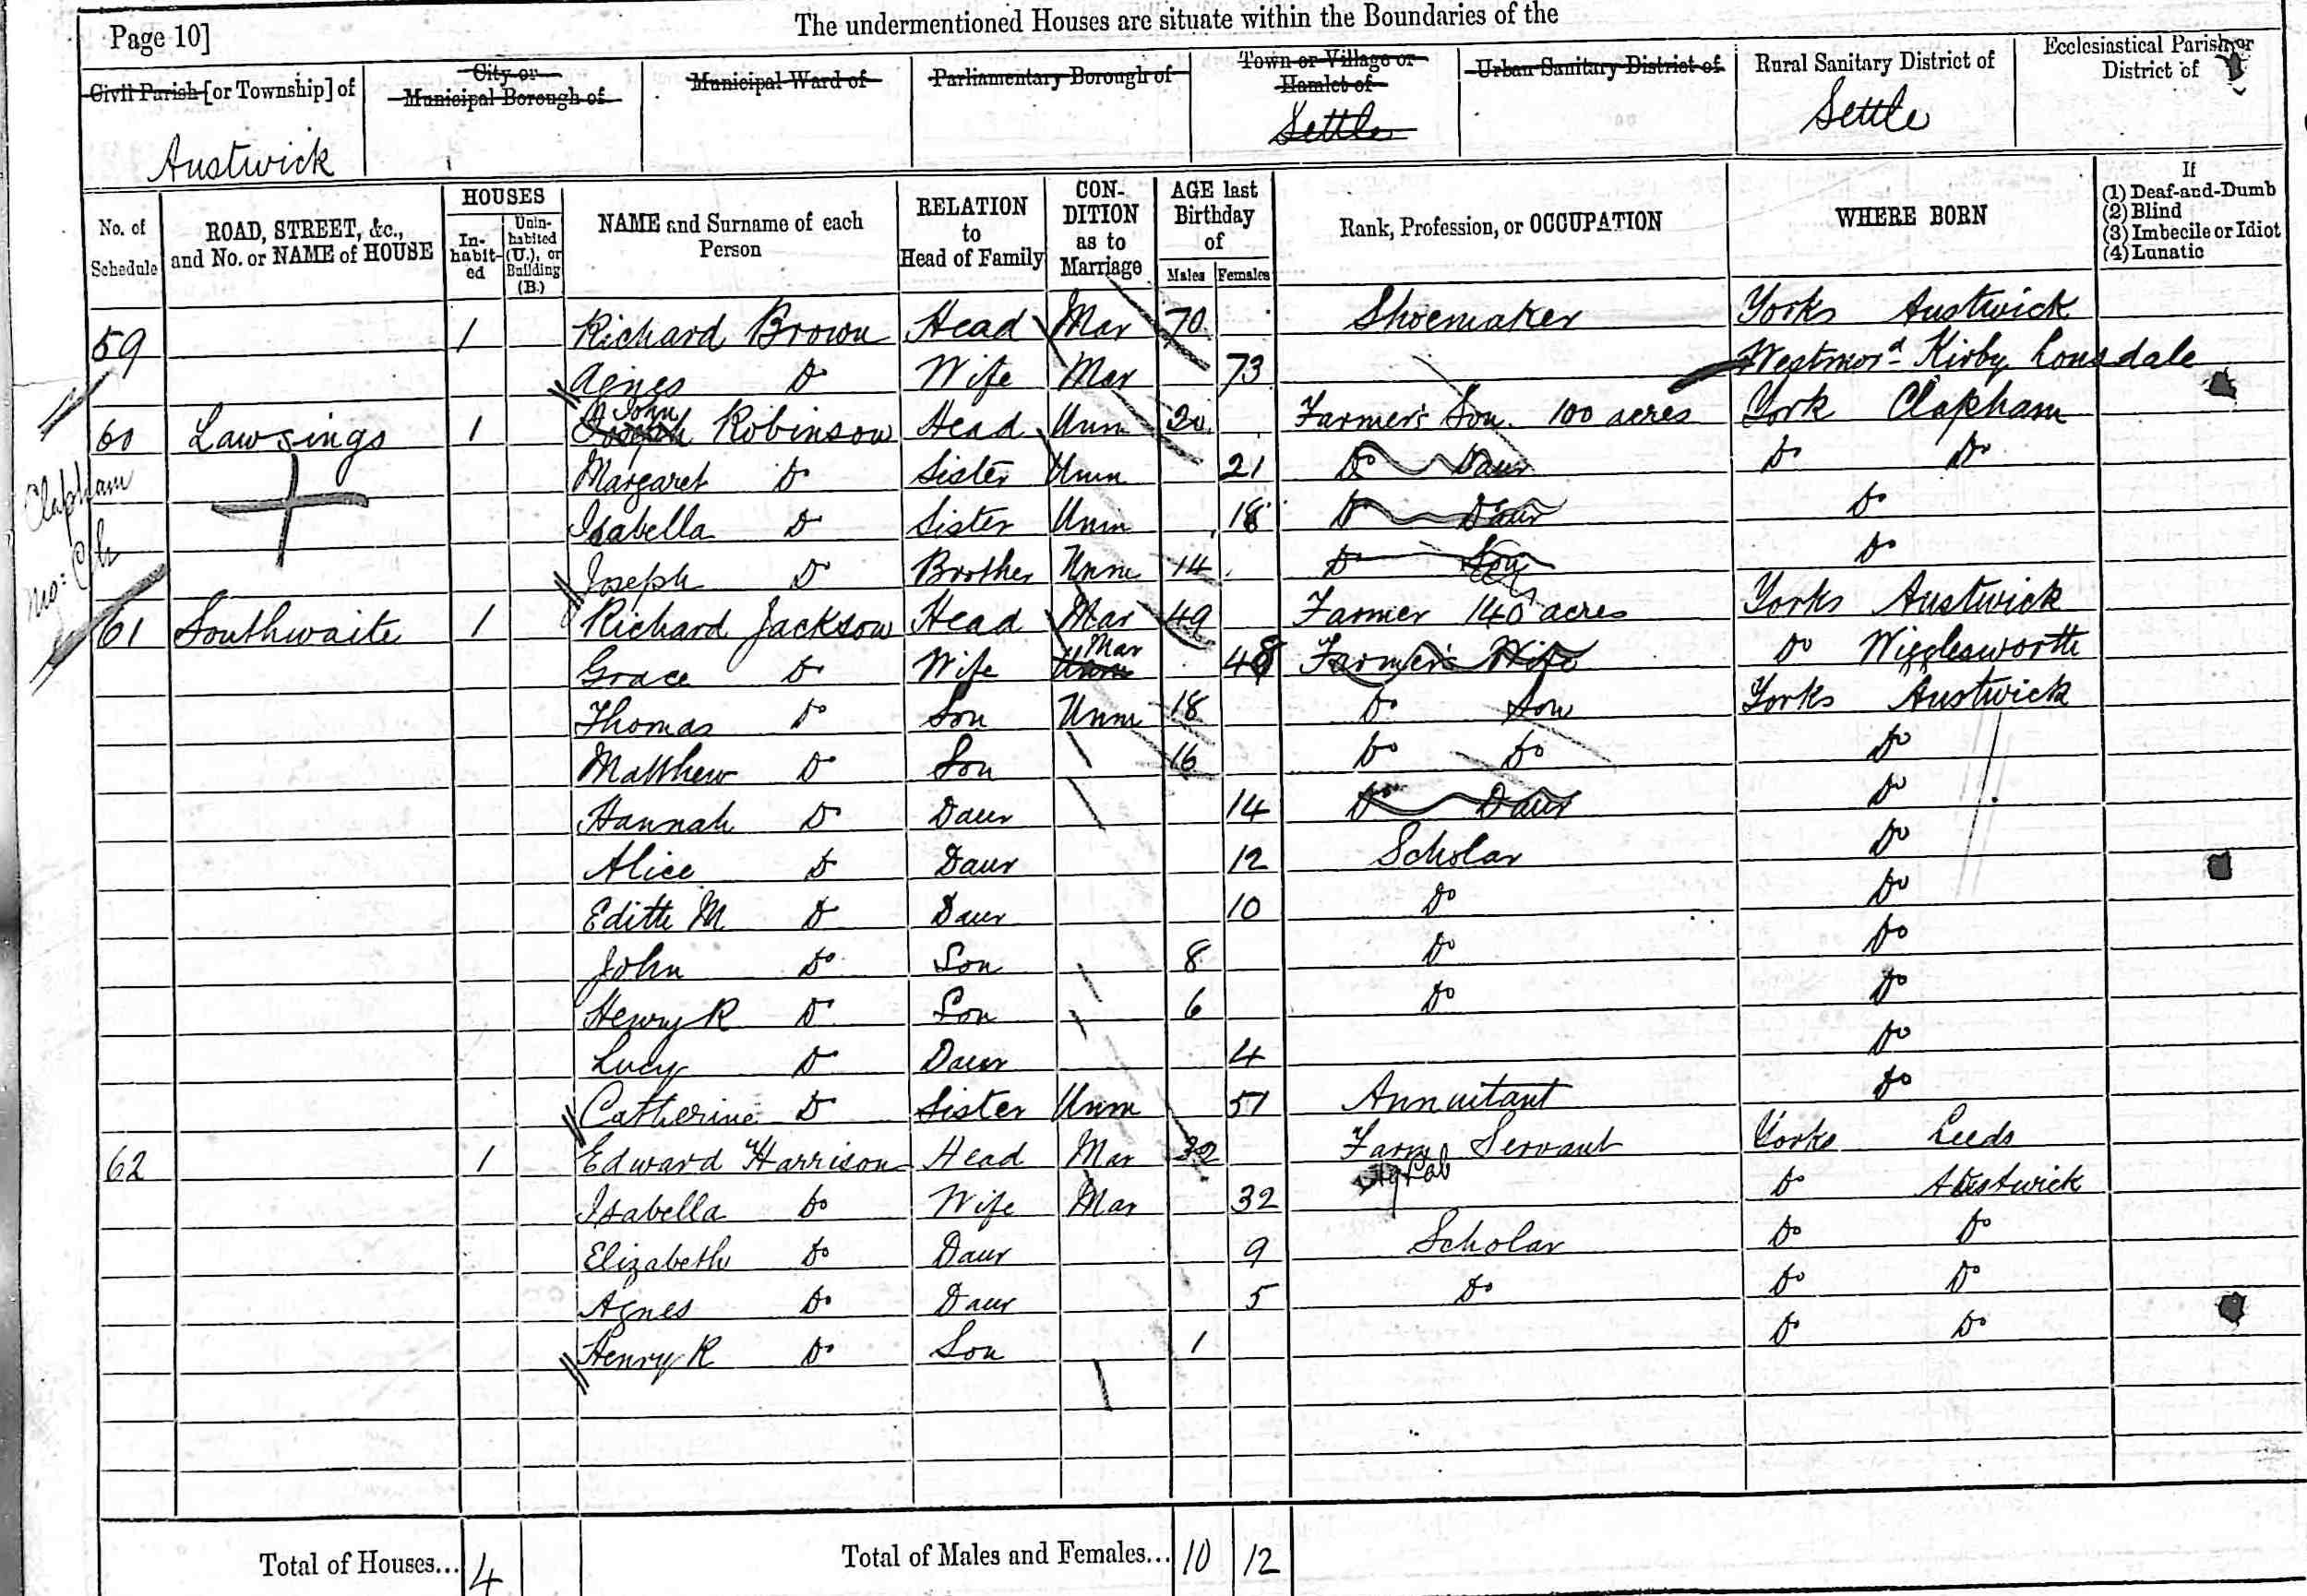 The undermentioned Houses are situate within the Boundaries of the
Page 10]
Civil Parish [or Township] of
City or Municipal Borough of
Municipal Ward of
Parliamentary Borough of
Town or Village or Hamlet of
Urban Sanitary District of
Rural Sanitary District of
Ecclesiastical Parish or District of
Austwick Settle Settle
No. of Schedule
ROAD, STREET, &c., and No. or NAME of HOUSE
HOUSES
In-habit-ed
Unin-habited (U.), or Building (B.)
NAME and Surname of each Person
RELATION to Head of Family
CON-DITION as to Marriage
AGE last Birthday of
Males Females
Rank, Profession, or OCCUPATION
WHERE BORN
If
(1) Deaf-and-Dumb
(2) Blind
(3) Imbecile or Idiot
(4) Lunatic
59 1 Richard Brown Head Mar 70 Shoemaker Yorks Austwick
Agnes Do Wife Mar 73 Westmord Kirby Lonsdale
60 Lawsings 1 John Robinson Head Unm 20 Farmer's Son 100 acres York Clapham
Margaret Do Sister Unm 21 Do Daur Do Do
Clapham
Isabella Do Sister Unm 18 Do Daur Do
Joseph Do Brother Unm 14 Do Son Do
61 Southwaite 1 Richard Jackson Head Mar 49 Farmer 140 acres Yorks Austwick
Grace Do Wife Unm Mar 48 Farmer's Wife Do Wigglesworth
Thomas Do Son Unm 18 Do Son Yorks Austwick
Matthew Do Son 16 Do Do Do
Hannah Do Daur 14 Do Daur Do
Alice Do Daur 12 Scholar Do
Edith M Do Daur 10 Do Do
John Do Son 8 Do Do
Henry R Do Son 6 Do Do
Lucy Do Daur 4 Do
Catherine Do Sister Unm 51 Annuitant Do
62 1 Edward Harrison Head Mar 32 Farm Servant Yorks Leeds
Ag Lab
Isabella Do Wife Mar 32 Do Austwick
Elizabeth Do Daur 9 Scholar Do Do
Agnes Do Daur 5 Do Do Do
Henry R Do Son 1 Do Do
Total of Houses... 4 Total of Males and Females... 10 12